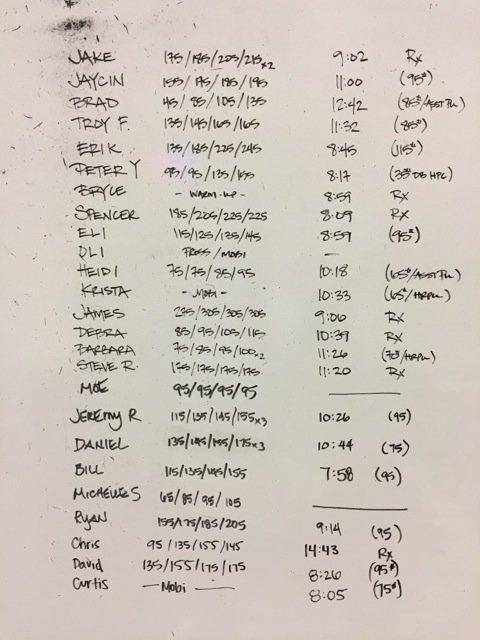 JAKE 175/185/205/215x2 9:02 Rx
JAYCIN 155/175/185/195 11:00 (95#)
BRAD 45/85/105/135 12:42 (85#/ASST PU)
TROY F. 135/145/165/165 11:32 (85#)
ERIK 135/185/225/245 8:45 (115#)
PETER Y 95/95/135/155 8:17 (35# DB HPC)
BRYCE - WARM-UP - 8:59 Rx
SPENCER 185/205/225/225 8:09 Rx
ELI 115/125/135/145 8:59 (95#)
OLI PRESS/MOBI —
HEIDI 75/75/85/95 10:18 (65#/ASST PU)
KRISTA - MOBI - 10:33 (65#/HRPU)
JAMES 275/305/305/305 9:06 Rx
DEBRA 85/95/105/115 10:39 Rx
BARBARA 75/85/95/100x2 11:26 (70#/HRPU)
STEVE R. 175/175/175/175 11:20 Rx
MOE 95/95/95/95 —
JEREMY R 115/135/145/155x3 10:26 (95)
DANIEL 135/145/155/175x3 10:44 (75)
BILL 115/135/145/155 7:58 (95)
MICHELLE S 65/85/95/105 —
RYAN 155/175/185/205 9:14 (95)
Chris 95/135/155/145 14:43 Rx
David 135/155/175/175 8:26 (95#)
Curtis — Mobi — 8:05 (75#)